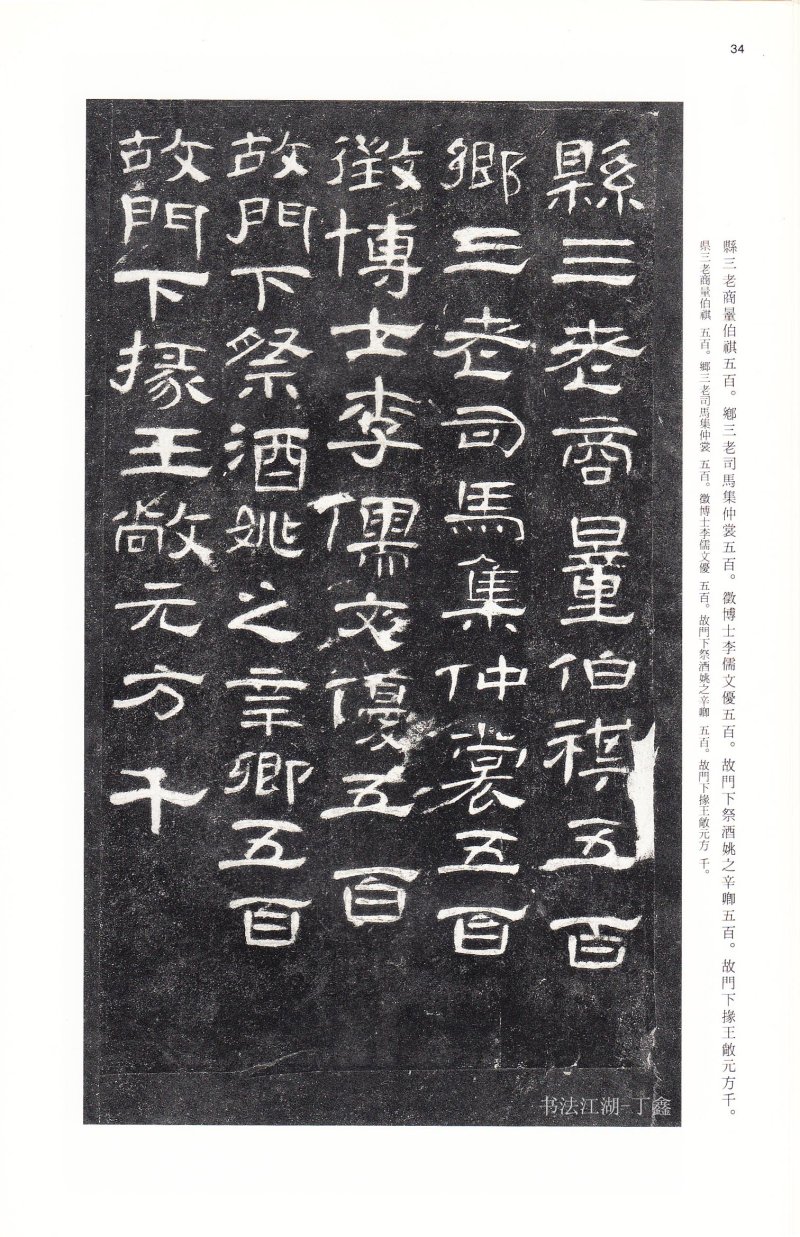 34
縣三老商量伯祺五百。鄉三老司馬集仲裳五百。徵博士李儒文優五百。故門下祭酒姚之辛卿五百。故門下掾王敞元方千。
県三老商量伯祺 五百。郷三老司馬集仲裳 五百。徴博士李儒文優 五百。故門下祭酒姚之辛卿 五百。故門下掾王敞元方 千。
縣三老商量伯祺五百
鄉三老司馬集仲裳五百
徵博士李儒文優五百
故門下祭酒姚之辛卿五百
故門下掾王敞元方千
书法江湖-丁鑫